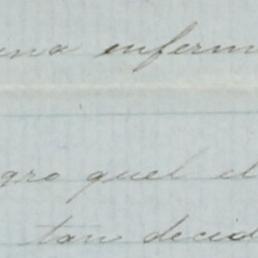 una enferm
gro quel el
tan decid